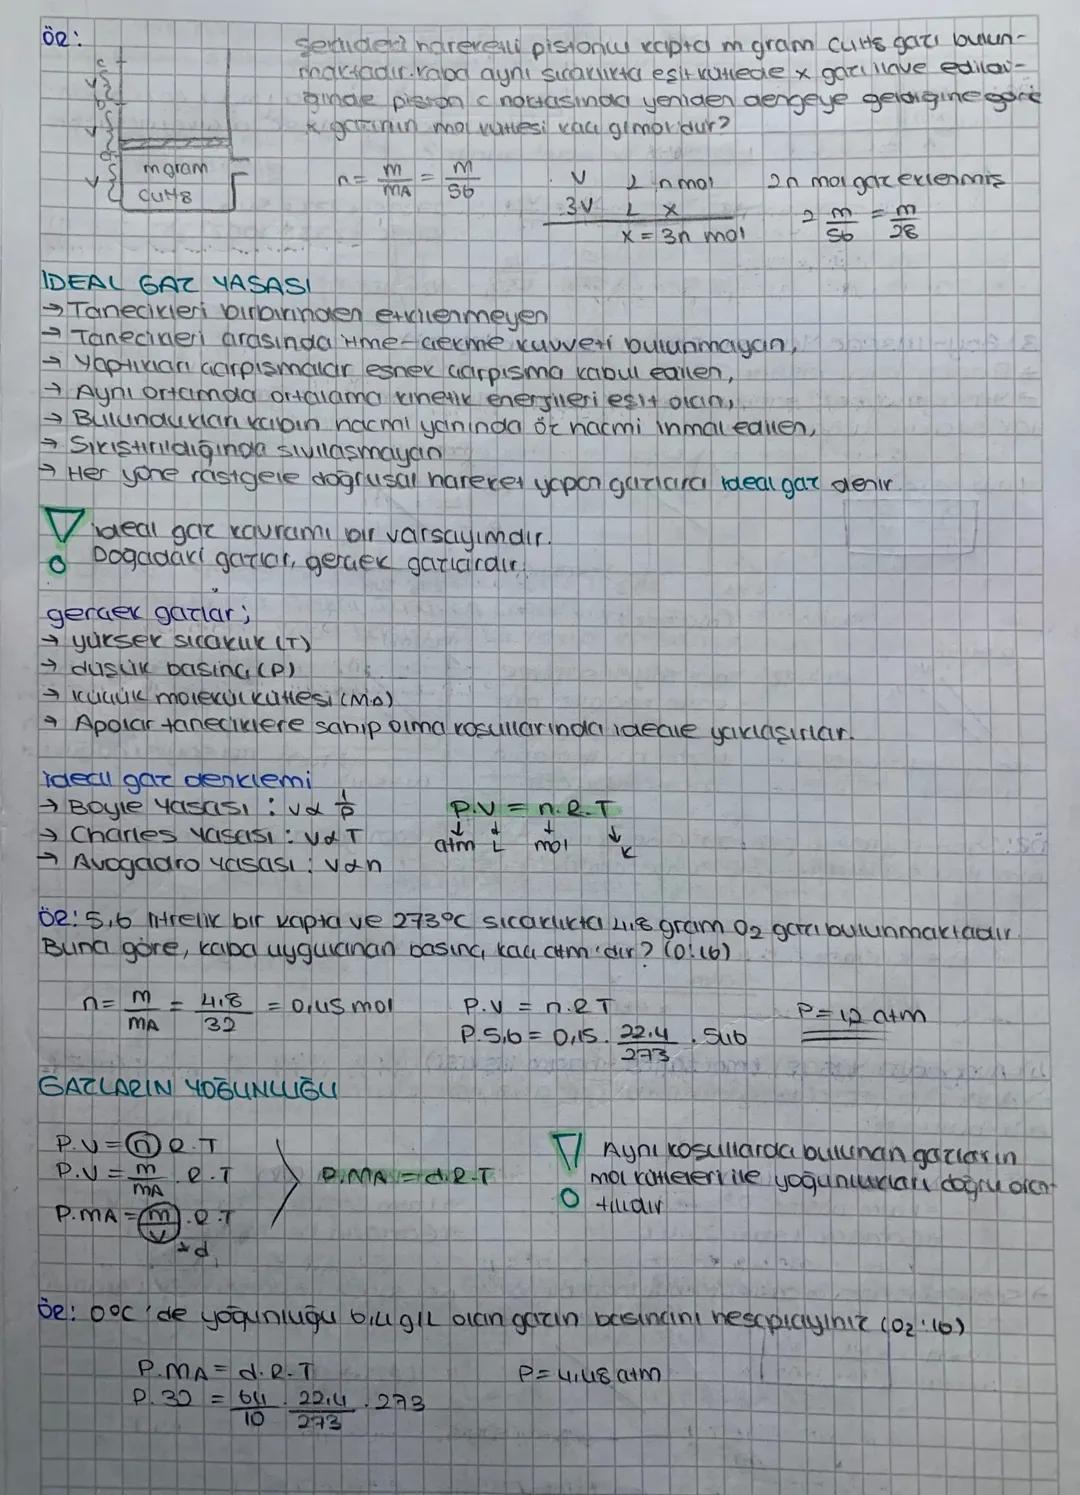 ÖR:
Şekildeki hareketli pistonlu kapta m gram C4H8 gazı bulun-
maktadır. Kaba aynı sıcaklıkta eşit kütlede x gazı ilave edildi-
ğinde piston c noktasında yeniden dengeye geldiğine göre
x gazının mol kütlesi kaç g/mol'dur?
c
V
b
V
a
V
m gram
C4H8
n = m/MA = m/56
V ⟂ n mol
3V ⟂ x
x = 3n mol
2n mol gaz eklenmiş
2 m/56 = m/28
İDEAL GAZ YASASI
→ Tanecikleri birbirinden etkilenmeyen
→ Tanecikleri arasında itme-çekme kuvveti bulunmayan,
→ Yaptıkları çarpışmalar esnek çarpışma kabul edilen,
→ Aynı ortamda ortalama kinetik enerjileri eşit olan,
→ Bulundukları kabın hacmi yanında öz hacmi ihmal edilen,
→ Sıkıştırıldığında sıvılaşmayan
→ Her yöne rastgele doğrusal hareket yapan gazlara ideal gaz denir.
İdeal gaz kavramı bir varsayımdır.
Doğadaki gazlar, gerçek gazlardır.
gerçek gazlar;
→ yüksek sıcaklık (T)
→ düşük basınç (P)
→ küçük molekül kütlesi (MA)
→ Apolar taneciklere sahip olma koşullarında ideale yaklaşırlar.
ideal gaz denklemi
→ Boyle Yasası : V α 1/P
→ Charles Yasası : V α T
→ Avogadro Yasası : V α n
P.V = n.R.T
atm L mol K
ÖR: 5,6 litrelik bir kapta ve 273°C sıcaklıkta 4,8 gram O2 gazı bulunmaktadır.
Buna göre, kaba uygulanan basınç kaç atm'dir? (O:16)
n = m/MA = 4,8/32 = 0,15 mol
P.V = n.R.T
P.5,6 = 0,15 . 22,4/273 . 546
P = 1,2 atm
GAZLARIN YOĞUNLUĞU
P.V = n R.T
P.V = m/MA . R.T
P.MA = m/V . R.T
d
P.MA = d.R.T
Aynı koşullarda bulunan gazların
mol kütleleri ile yoğunlukları doğru oran-
tılıdır
ÖR: 0°C'de yoğunluğu 6,4 g/L olan gazın basıncını hesaplayınız (O2:16)
P.MA = d.R.T
P.32 = 64/10 . 22,4/273 . 273
P = 4,48 atm